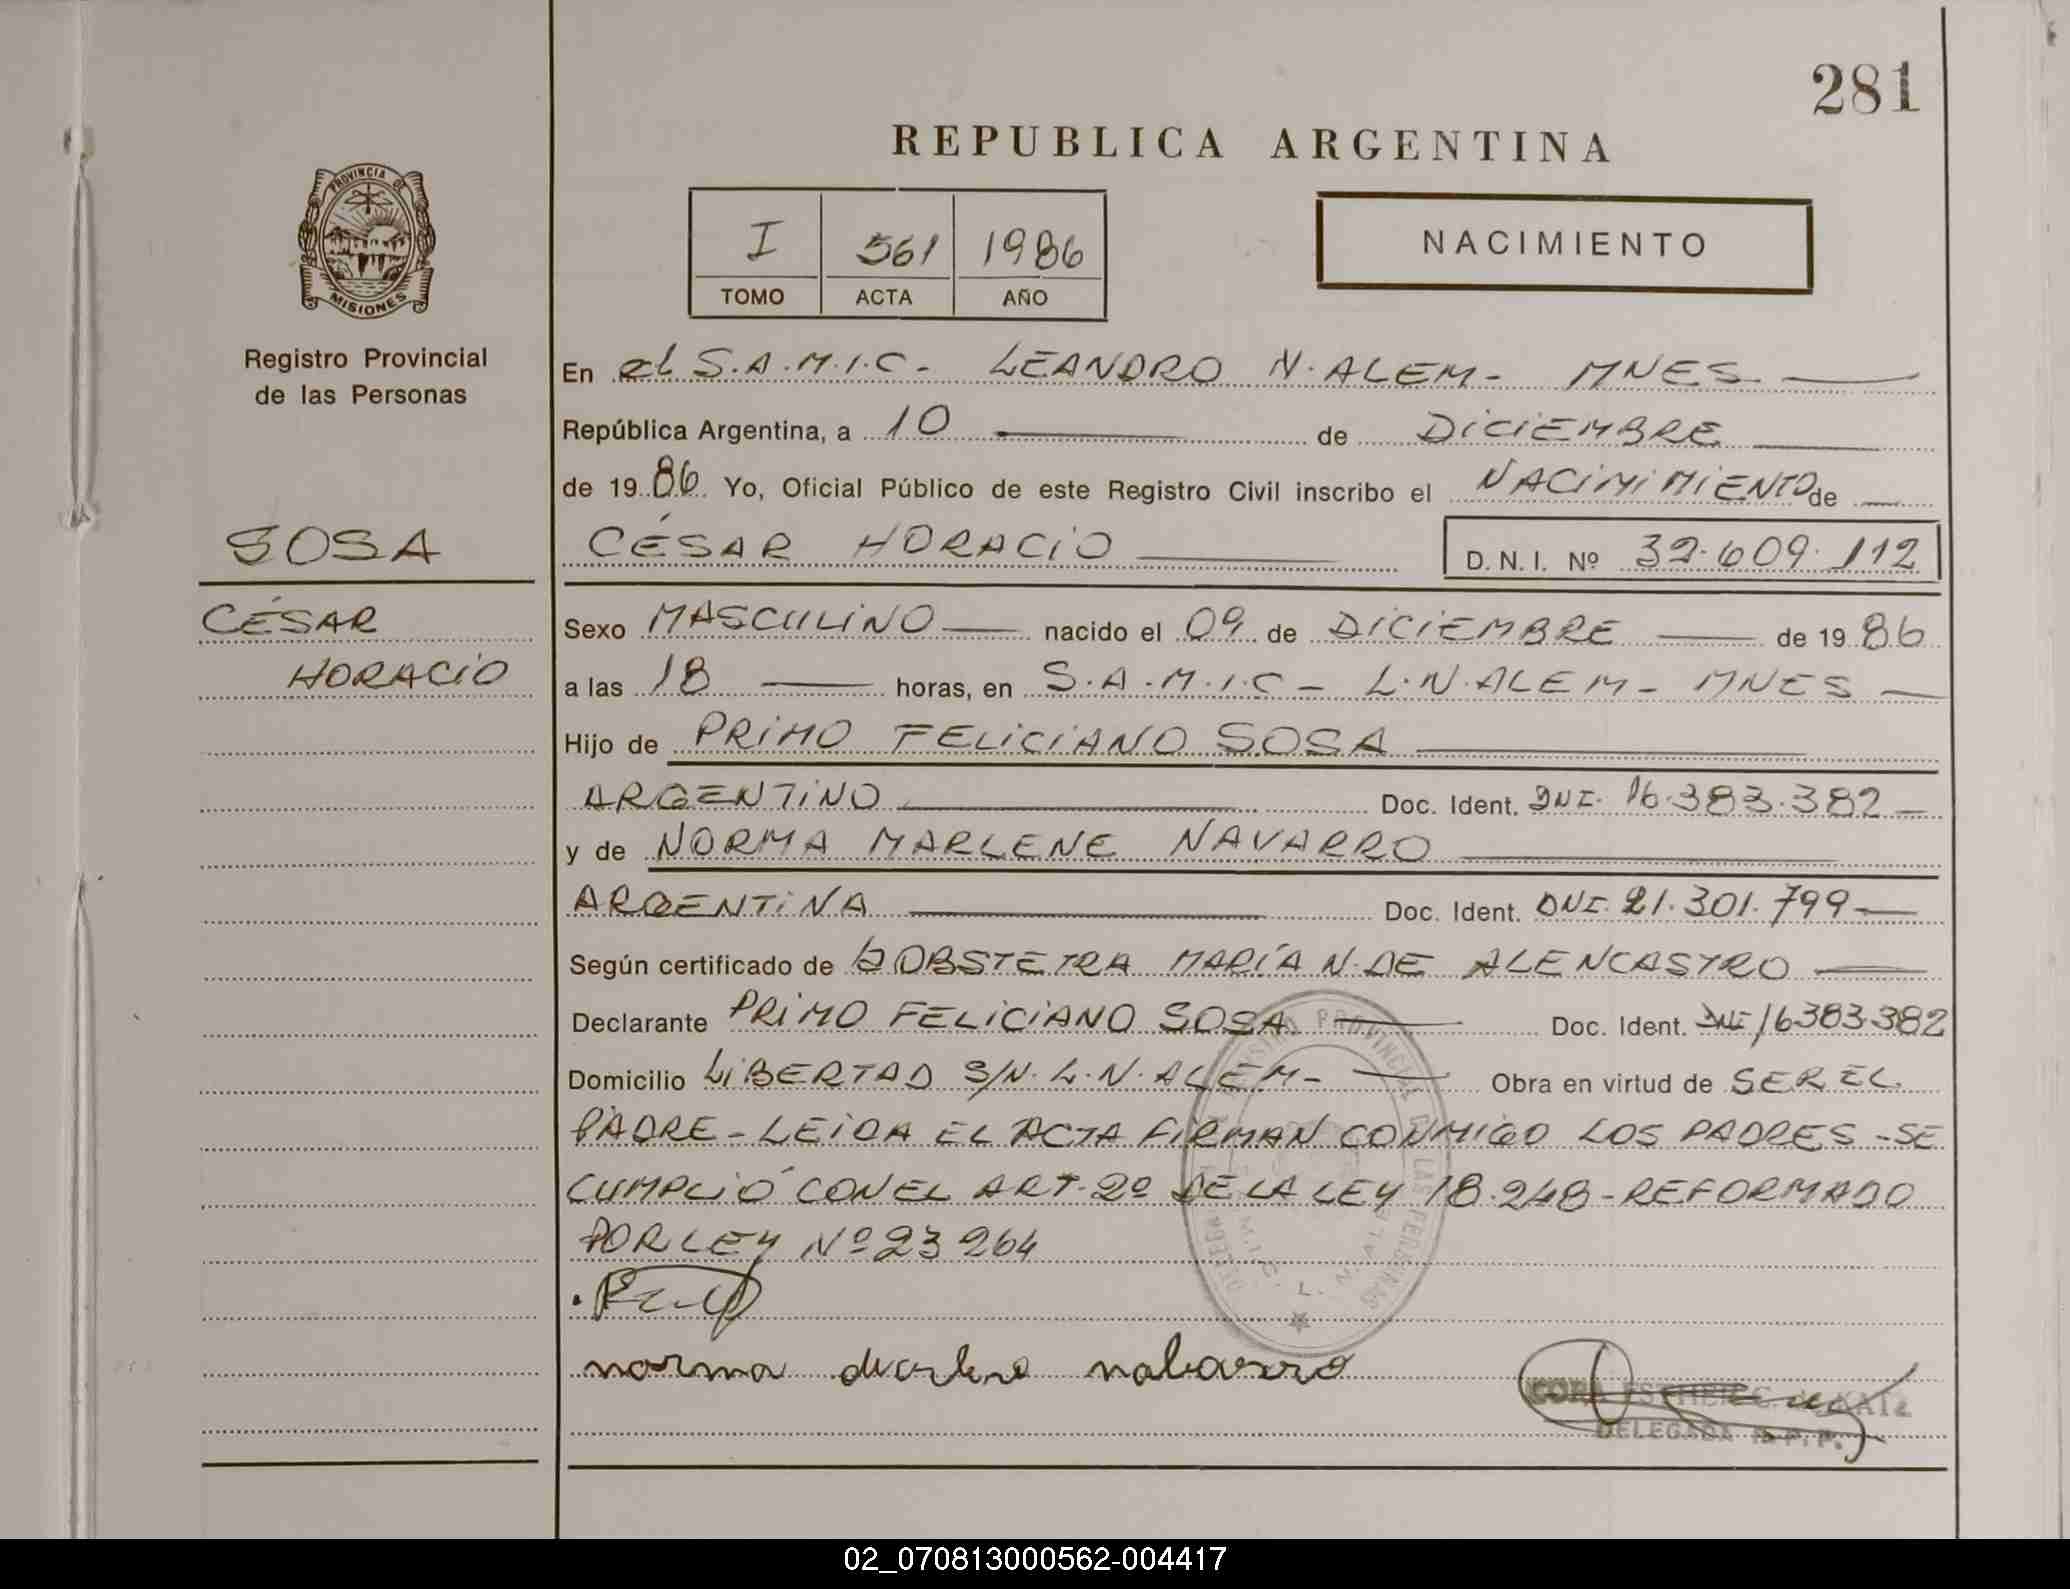 281
REPUBLICA ARGENTINA
PROVINCIA DE
MISIONES
Registro Provincial
de las Personas
I 561 1986
TOMO ACTA AÑO
NACIMIENTO
En el S.A.M.I.C. LEANDRO N. ALEM - MNES
República Argentina, a 10 de DICIEMBRE
de 19 86. Yo, Oficial Público de este Registro Civil inscribo el NACIMIMIENTO de
SOSA
CÉSAR HORACIO D. N. I. Nº 32.609.112
CÉSAR
HORACIO
Sexo MASCULINO nacido el 09 de DICIEMBRE de 19 86
a las 18 horas, en S.A.M.I.C - L.N. ALEM - MNES
Hijo de PRIMO FELICIANO SOSA
ARGENTINO Doc. Ident. DNI. 16.383.382
y de NORMA MARLENE NAVARRO
ARGENTINA Doc. Ident. DNI. 21.301.799
Según certificado de OBSTETRA MARÍA N. DE ALENCASTRO
Declarante PRIMO FELICIANO SOSA Doc. Ident. DNI 16383382
Domicilio LIBERTAD S/N. L.N. ALEM - Obra en virtud de SER EL
PADRE - LEIDA EL ACTA FIRMAN CONMIGO LOS PADRES - SE
CUMPLIÓ CON EL ART. 2º DE LA LEY 18.248 - REFORMADO
POR LEY Nº 23264
norma nabarro
DELEGADA R. P. P.
02_070813000562-004417